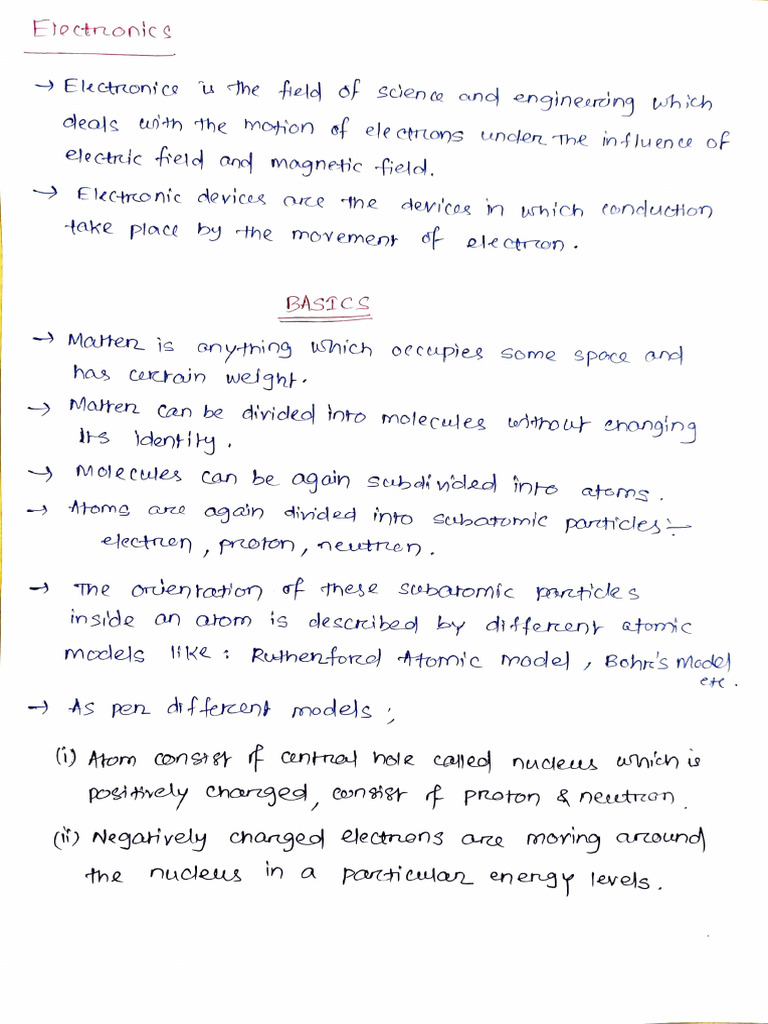 Electronics
→ Electronics is the field of science and engineering which
deals with the motion of electrons under the influence of
electric field and magnetic field.
→ Electronic devices are the devices in which conduction
take place by the movement of electron.
BASICS
→ Matter is anything which occupies some space and
has certain weight.
→ Matter can be divided into molecules without changing
its identity.
→ Molecules can be again subdivided into atoms.
→ Atoms are again divided into subatomic particles:-
electron, proton, neutron.
→ The orientation of these subatomic particles
inside an atom is described by different atomic
models like: Rutherford Atomic model, Bohr's Model
etc.
→ As per different models;
(i) Atom consist of central hole called nucleus which is
positively charged, consist of proton & neutron.
(ii) Negatively charged electrons are moving around
the nucleus in a particular energy levels.